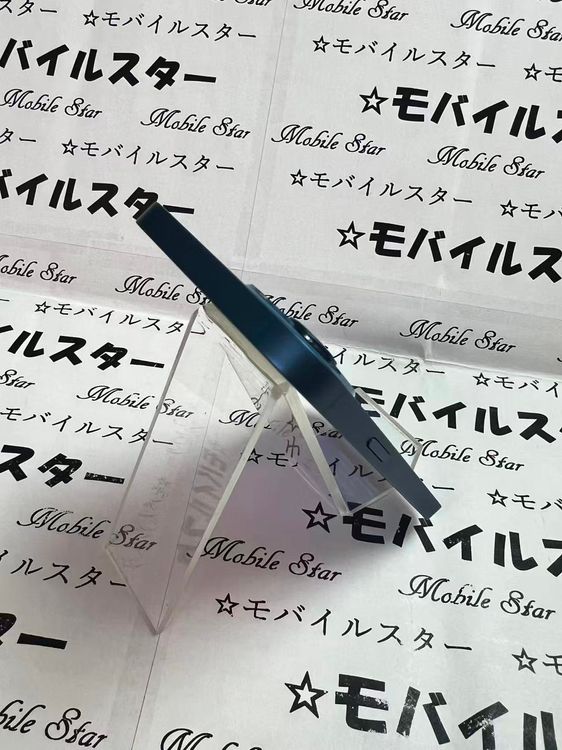 ☆モバイルスター Mobile Star
Mobile Star ☆モバイルスター
バイルスター
Mobile Star Mobile Star ☆モバイル
☆モバイルスター Mobile Star Mobile Star
バイルスター ☆モバイルスター
☆モバイル
Mobile Star Mobile Star
☆モバイルスター Mobile Star Mobile Star
イルスター ☆モバイルスター
Mobile Star
モバイルスター
スター Mobile Star
☆モバイル
Mobile Star Mobile Star
☆モバイルスター Mobile Star
ター ☆モバイルスター
☆モバイル
Mobile Star